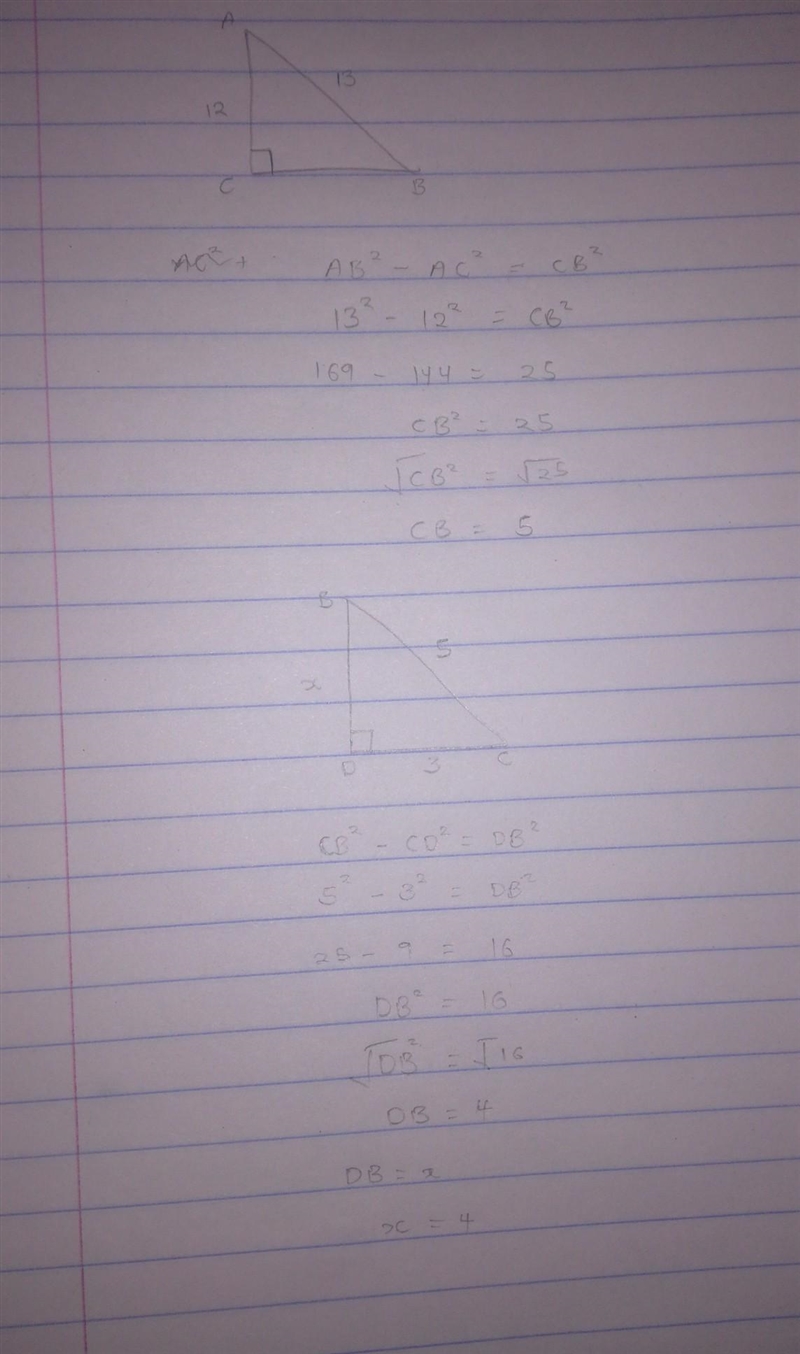 A
13
12
C B
AC² + AB² - AC² = CB²
13² - 12² = CB²
169 - 144 = 25
CB² = 25
√CB² = √25
CB = 5
B
5
x
D 3 C
CB² - CD² = DB²
5² - 3² = DB²
25 - 9 = 16
DB² = 16
√DB² = √16
DB = 4
DB = x
x = 4